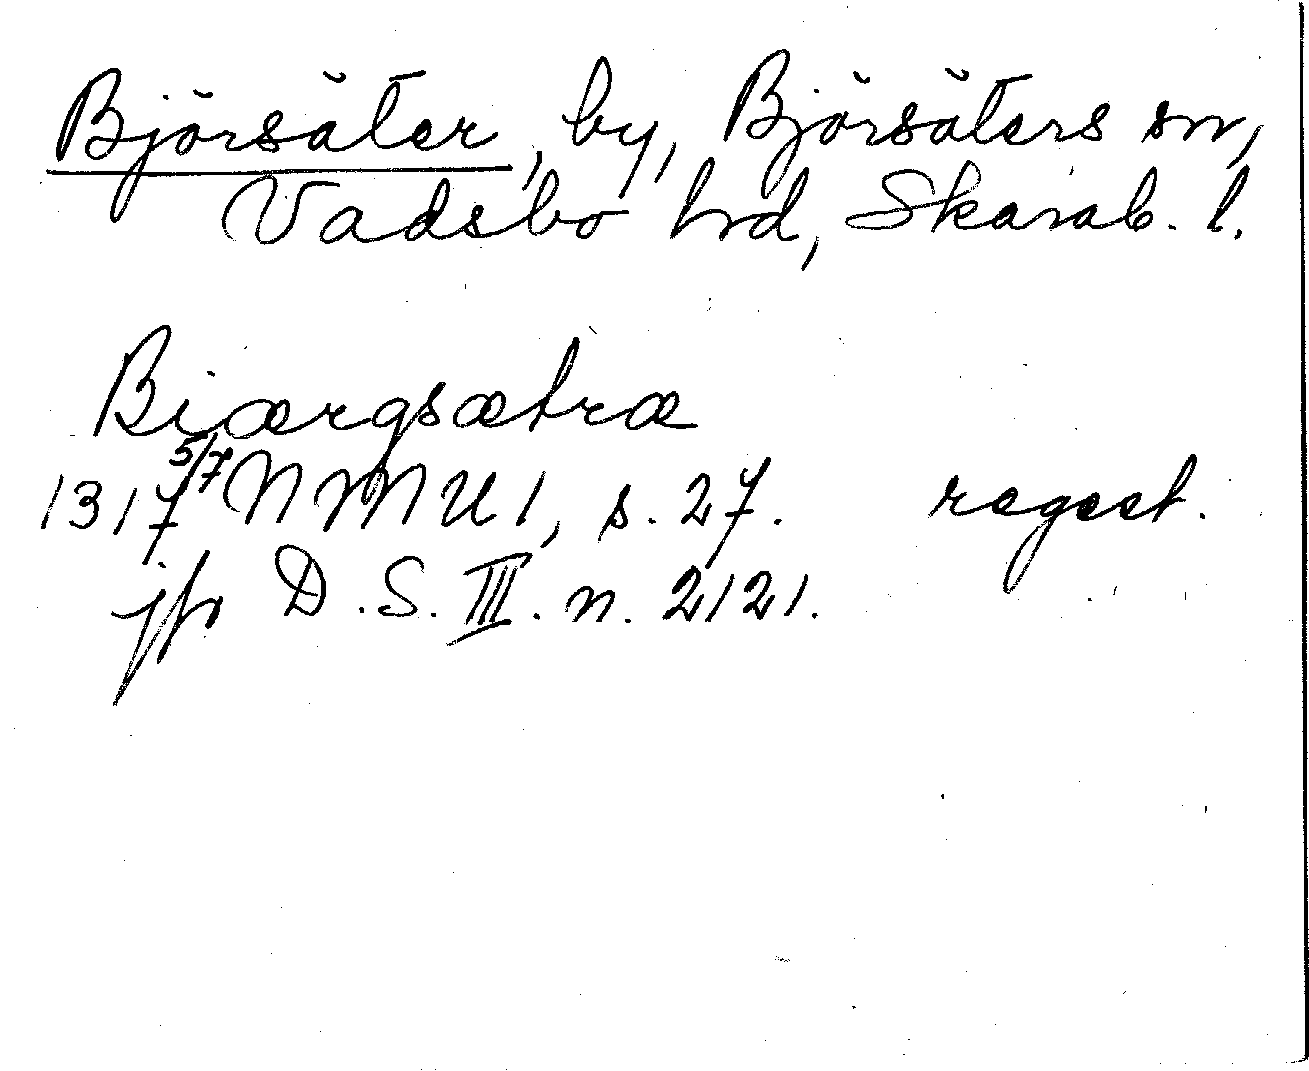 Björsäter, by, Björsäters sn,
Vadsbo hrd, Skarab. l.
Biærgsætræ
1317 5/7 NMU 1, s. 27. regest.
jfr D.S. III. n. 2121.